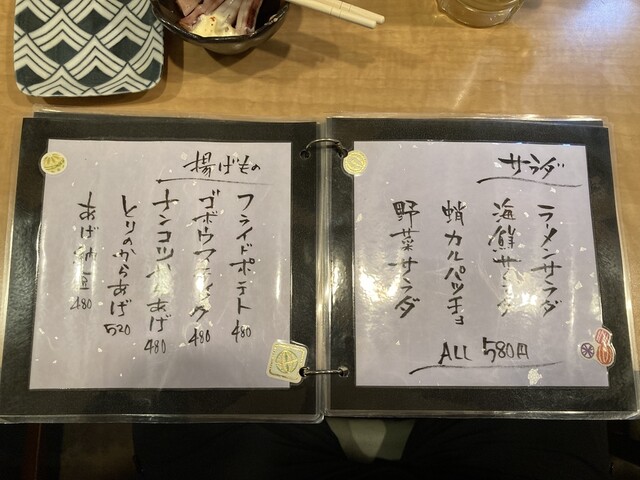 サラダ
ラーメンサラダ
海鮮サラダ
蛸カルパッチョ
野菜サラダ
ALL 580円
揚げもの
フライドポテト 480
ゴボウスティック 480
ナンコツ唐あげ 480
とりのからあげ 520
あげ納豆 480